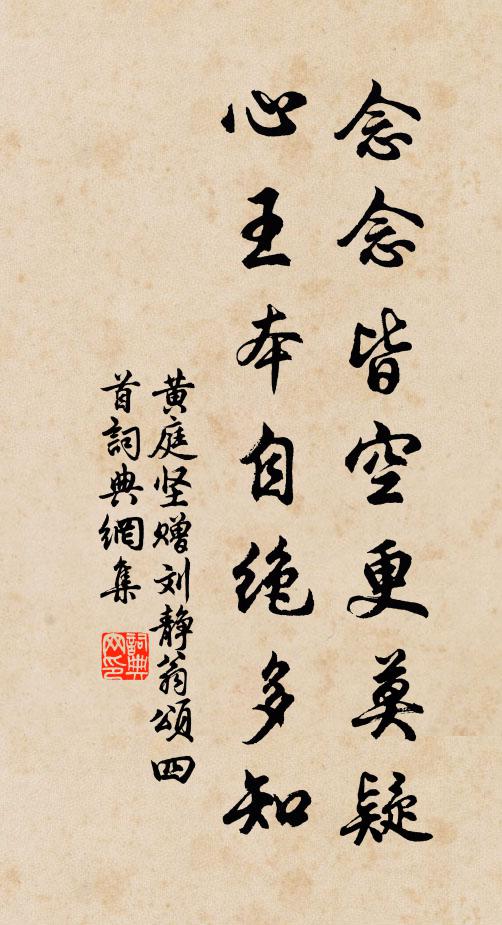 念念皆空更莫疑
心王本自绝多知
黄庭坚赠刘静翁颂四
首詞典網集
詞典網印